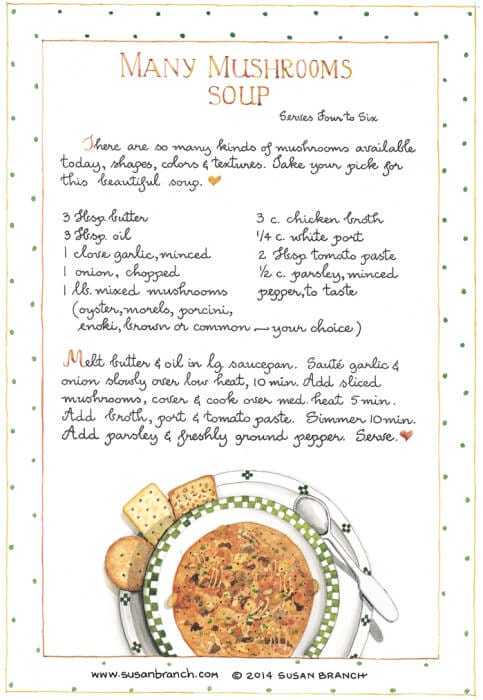 MANY MUSHROOMS
SOUP
Serves Four to Six
There are so many kinds of mushrooms available
today, shapes, colors & textures. Take your pick for
this beautiful soup.
3 Tbsp. butter
3 Tbsp. oil
1 clove garlic, minced
1 onion, chopped
1 lb. mixed mushrooms
(oyster, morels, porcini,
enoki, brown or common — your choice)
3 c. chicken broth
1/4 c. white port
2 Tbsp tomato paste
1/2 c. parsley, minced
pepper, to taste
Melt butter & oil in lg. saucepan. Sauté garlic &
onion slowly over low heat, 10 min. Add sliced
mushrooms, cover & cook over med. heat 5 min.
Add broth, port & tomato paste. Simmer 10 min.
Add parsley & freshly ground pepper. Serve.
www.susanbranch.com © 2014 SUSAN BRANCH